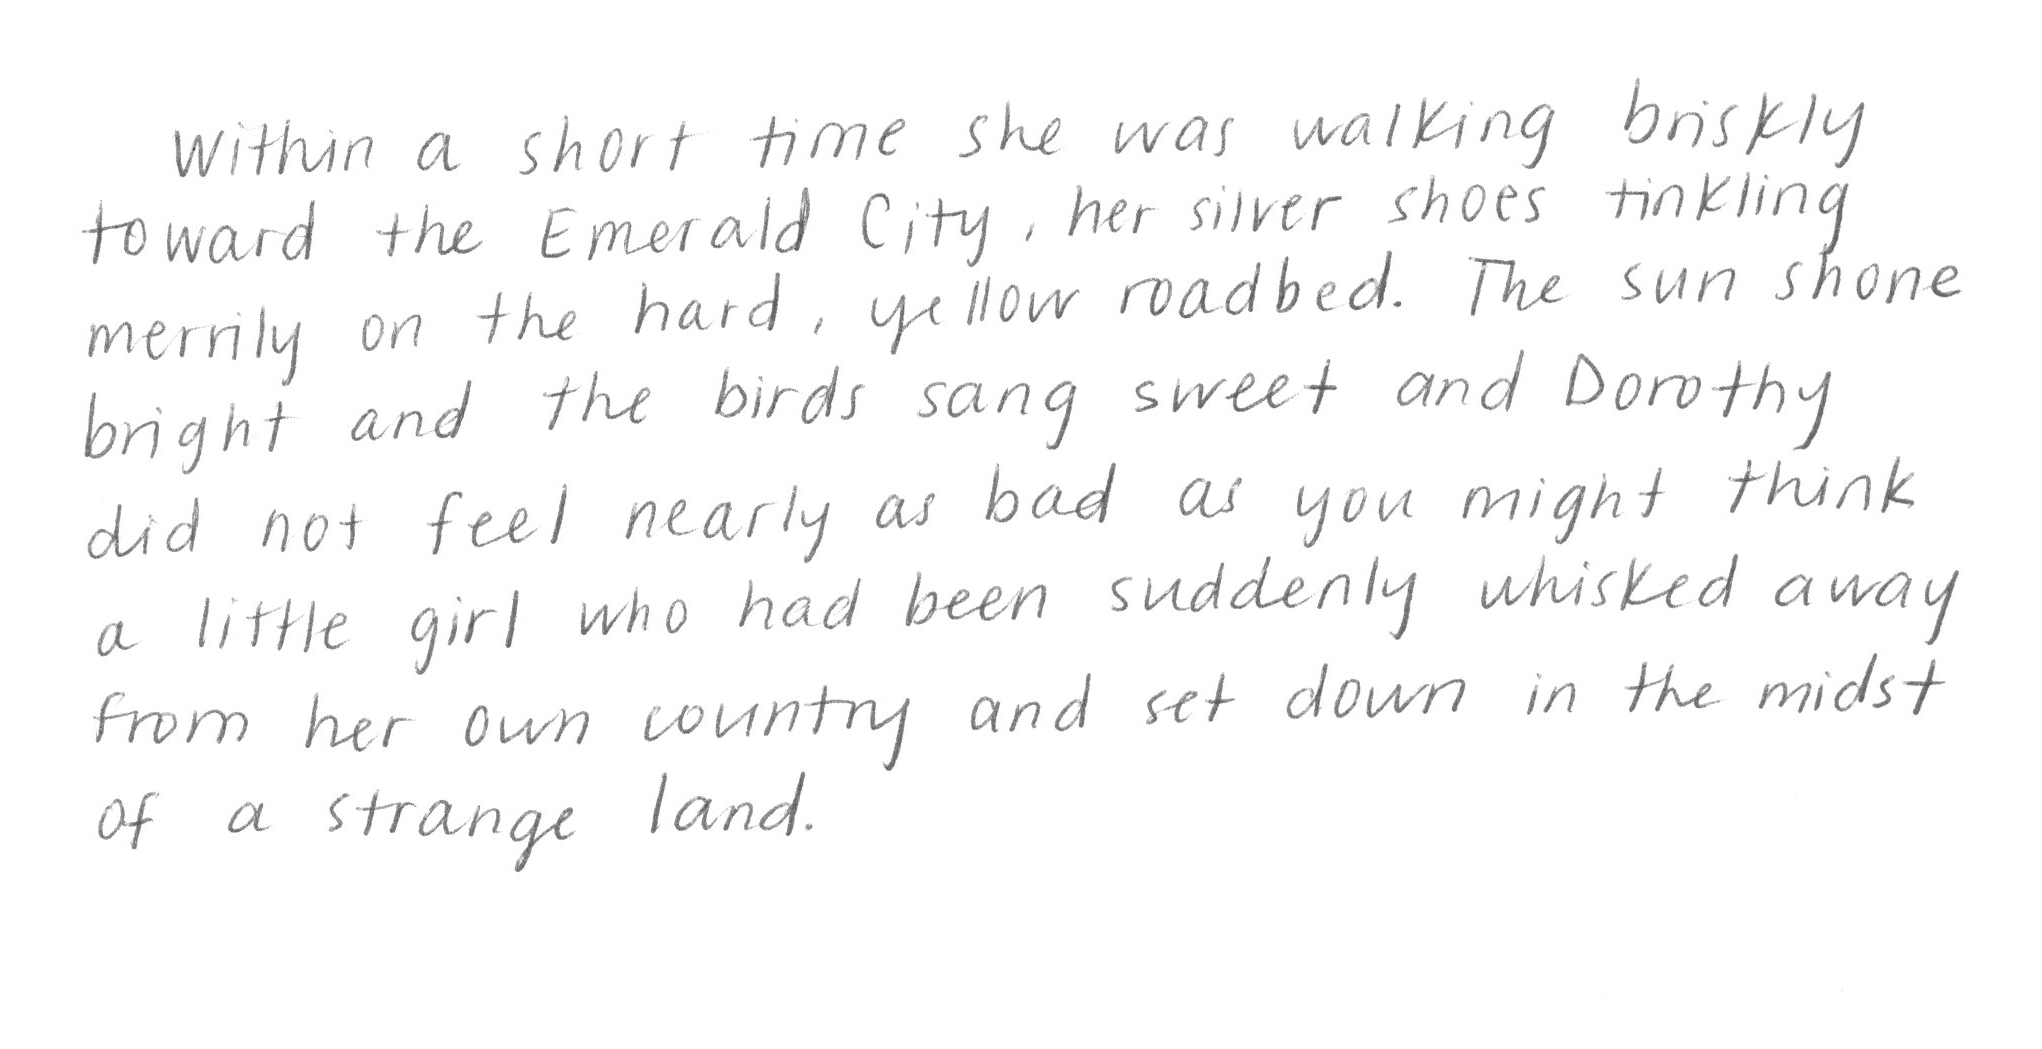 Within a short time she was walking briskly
toward the Emerald City, her silver shoes tinkling
merrily on the hard, yellow roadbed. The sun shone
bright and the birds sang sweet and Dorothy
did not feel nearly as bad as you might think
a little girl who had been suddenly whisked away
from her own country and set down in the midst
of a strange land.